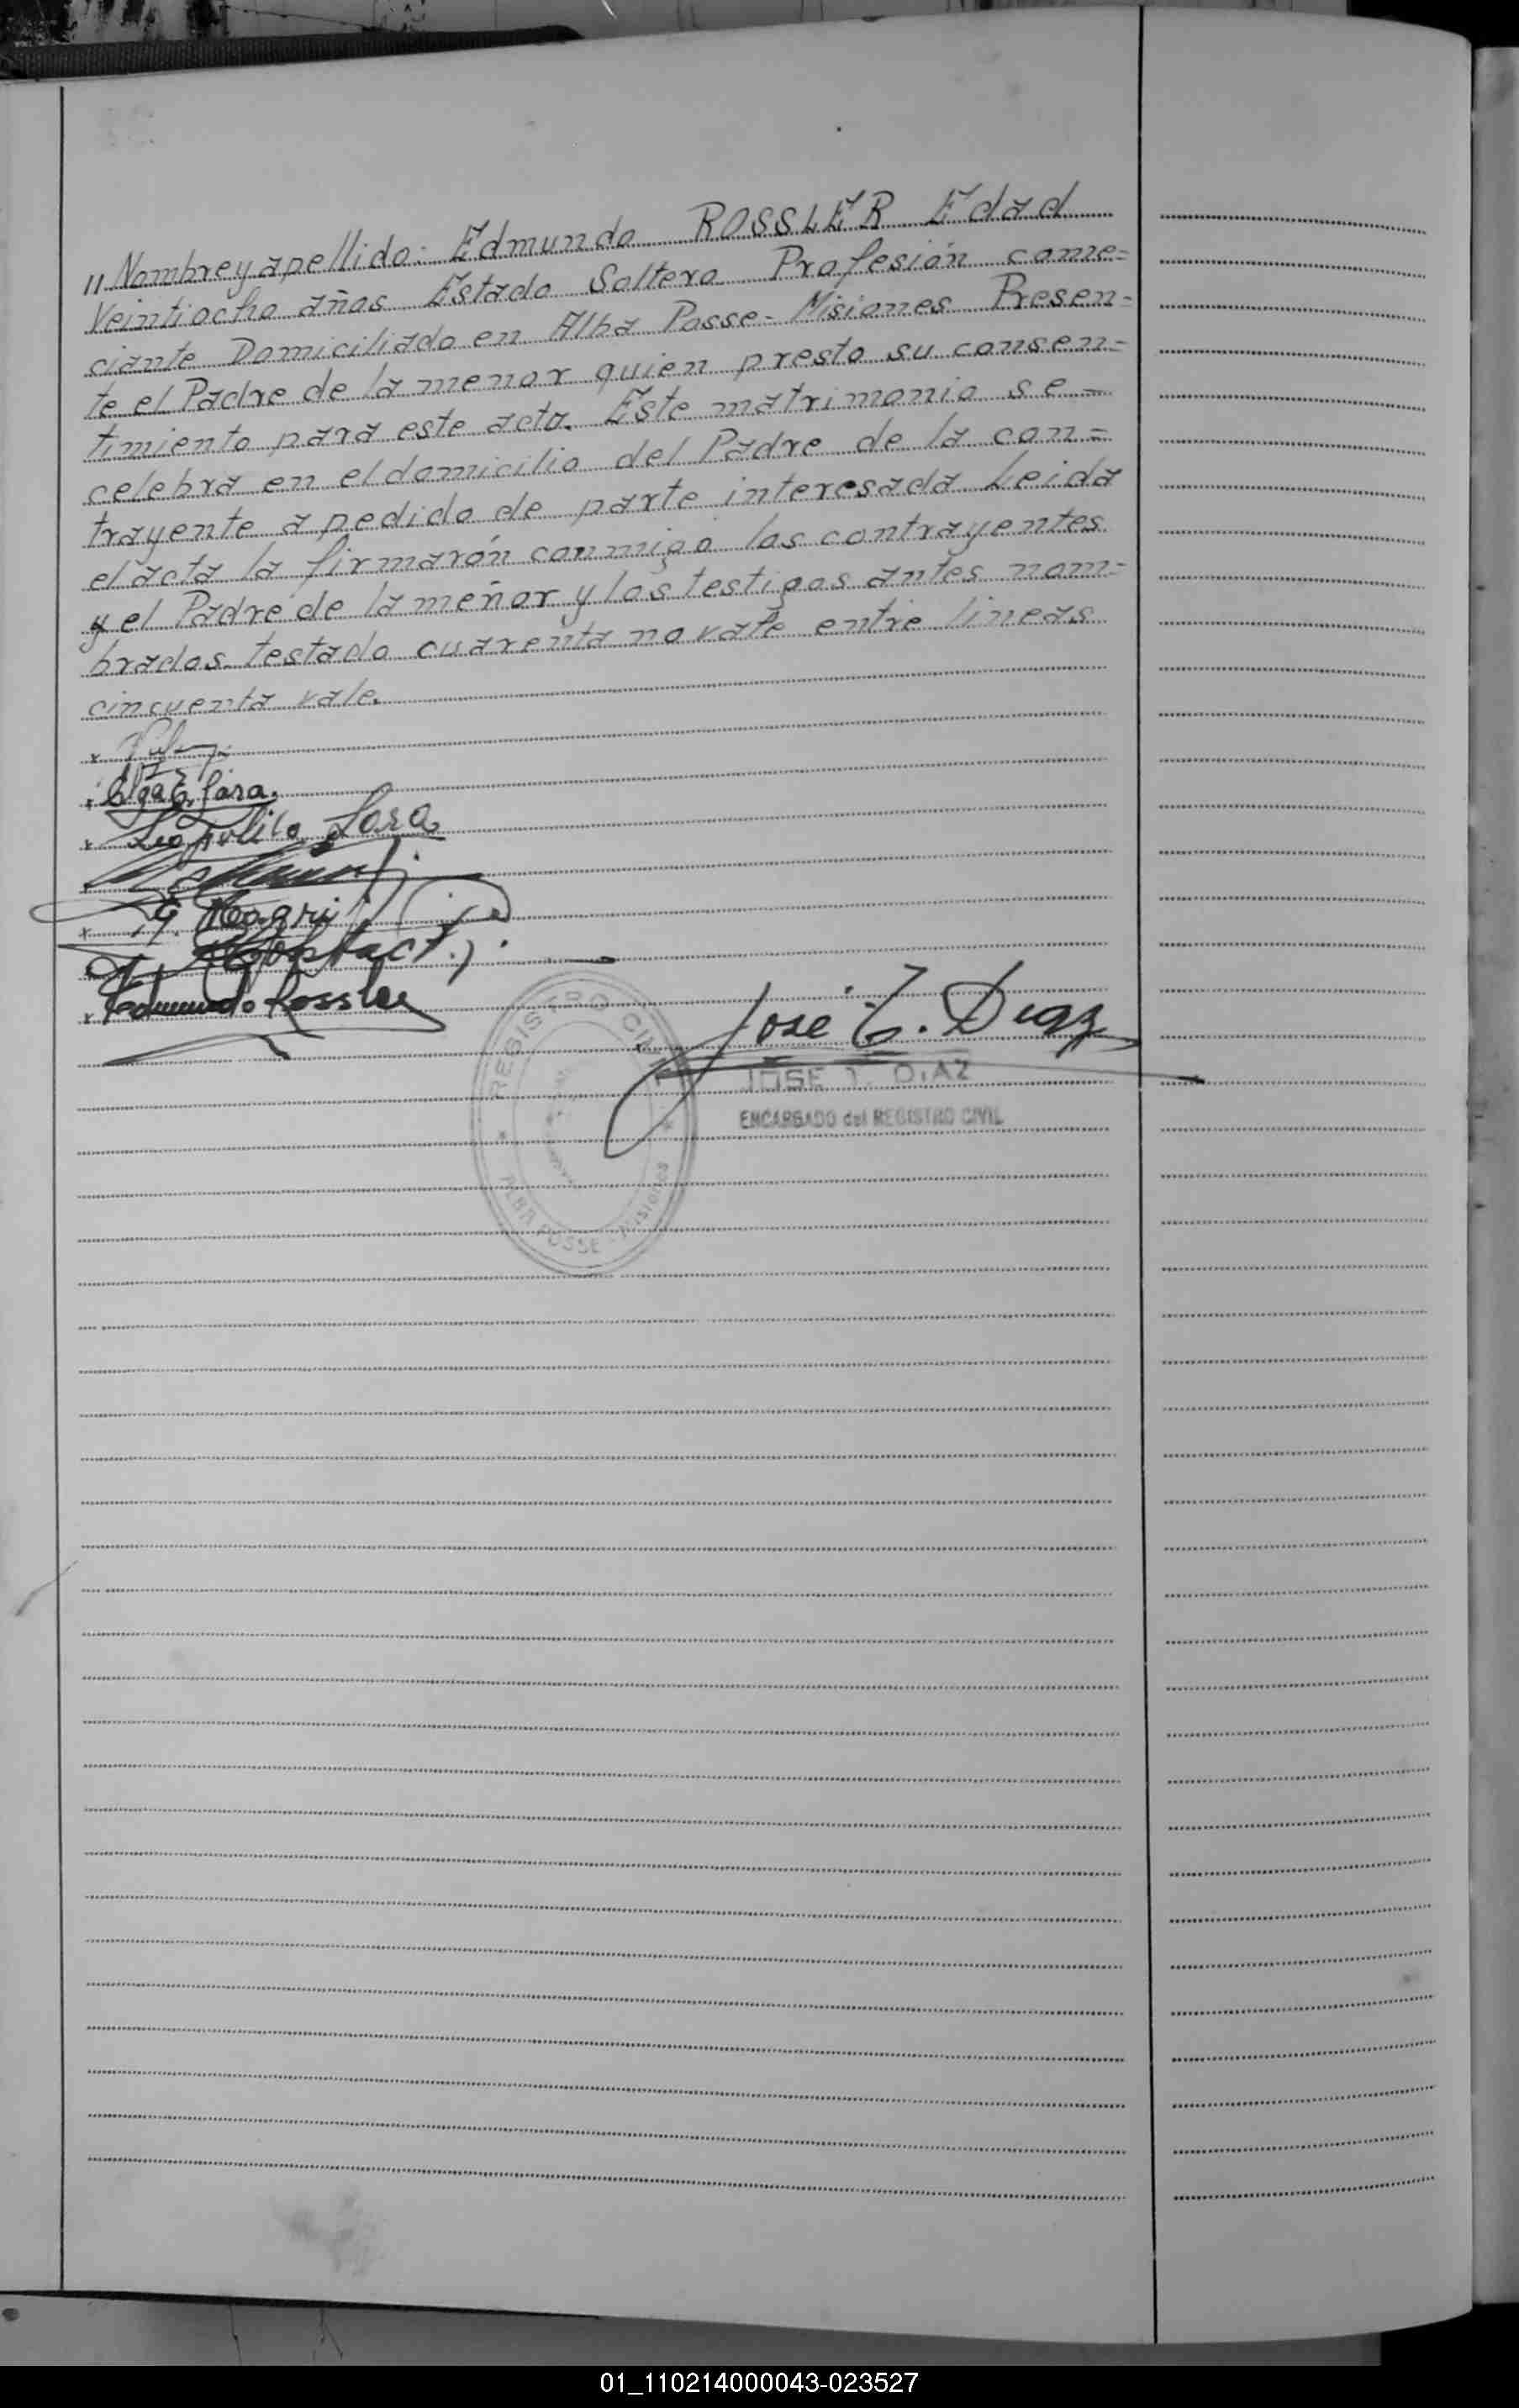 "Nombre y apellido: Edmundo ROSSLER Edad
Veintiocho años Estado Soltero Profesión come=
ciante Domiciliado en Alba Posse- Misiones Presen=
te el Padre de la menor quien presto su consen=
timiento para este acto. Este matrimonio se=
celebra en el domicilio del Padre de la con=
trayente a pedido de parte interesada Leida
el acta la firmarón conmigo los contrayentes
y el Padre de la menor y los testigos antes nom=
brados testado cuarenta no vale entre lineas
cincuenta vale.
Olga E. Sara.
Sara
Edmundo Rossler
José T. Diaz
JOSE T. DIAZ
ENCARGADO del REGISTRO CIVIL
REGISTRO CIVIL
ALBA POSSE Misiones
01_110214000043-023527